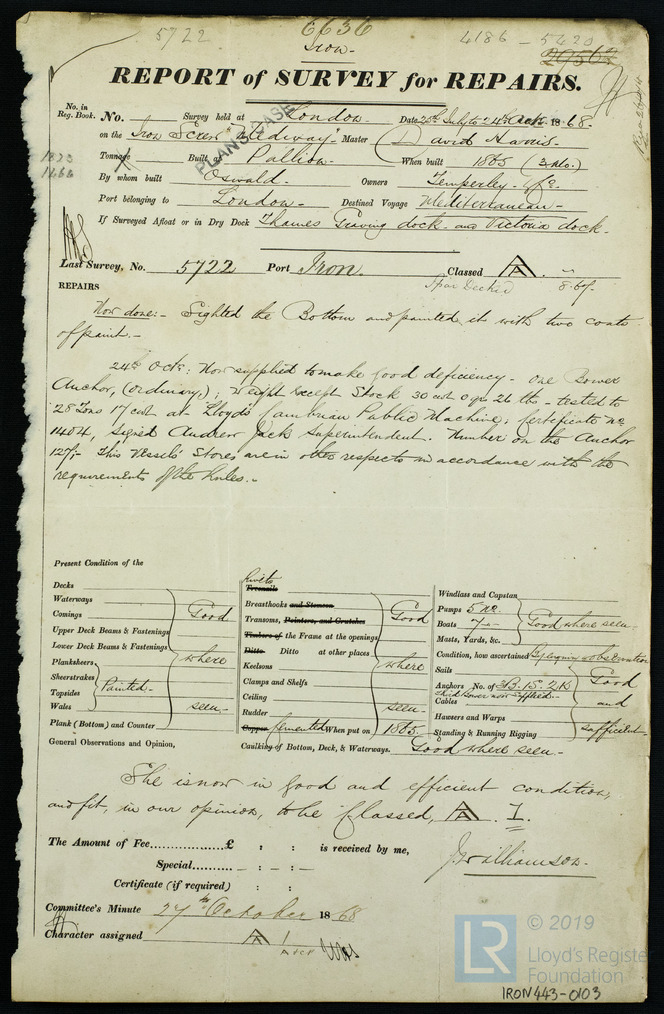 5722
6636
4186 - 5420
Iron.
REPORT of SURVEY for REPAIRS.
No. in Reg. Book. No. Survey held at London. Date 25th July to 24th Oct. 1868.
on the Iron Screw "Medway" Master David Harris.
PLANS CASE
1823
1666
Tonnage Built at Pallion. When built 1865 (3 Mo.)
By whom built Oswald. Owners Temperley & Co.
Port belonging to London. Destined Voyage Mediterranean
If Surveyed Afloat or in Dry Dock Thames Graving dock. and Victoria dock.
Last Survey, No. 5722 Port Iron. Classed A.
Spar Decked 8.67.
REPAIRS
Now done:- Sighted the Bottom and painted it with two coats
of paint.-
24th Octr: Now supplied to make good deficiency - One Bower
Anchor, (ordinary,); weight except Stock 30 cwt 0 qrs 26 lbs - tested to
28 Tons 17 cwt at Lloyds' Cambrian Public Machine; Certificate No
1404, signed Andrew Jack Superintendent. Number on the Anchor
127;- This Vessels' Stores are in other respects in accordance with the
requirements of the Rules.-
Present Condition of the
Decks
Waterways
Comings
Upper Deck Beams & Fastenings
Lower Deck Beams & Fastenings
Planksheers
Sheerstrakes
Topsides
Wales
Painted.
Plank (Bottom) and Counter
Good
where
seen.
Rivets
Treenails
Breasthooks and Stemson
Transoms, Pointers, and Crutches
Timbers of the Frame at the openings
Ditto Ditto at other places
Keelsons
Clamps and Shelfs
Ceiling
Rudder
Copper Cemented When put on 1865.
Good
where
seen.
Caulking of Bottom, Deck, & Waterways. Good where seen.
Windlass and Capstan
Pumps 5 No.
Boats 7
Masts, Yards, &c.
Good where seen.
Condition, how ascertained By enquiry & observation
Sails
Anchors No. of 3B. 1S. 2K
Cables
Hawsers and Warps
Standing & Running Rigging
Good
and
sufficient.
General Observations and Opinion,
She is now in good and efficient condition,
and fit, in our opinion, to be Classed, A. 1.
The Amount of Fee............... £ : : is received by me,
Special......... : :
Certificate (if required) : :
J. Williamson.
Committee's Minute 27th October 1868
Character assigned A 1
© 2019
LR
Lloyd's Register
Foundation
IRON443-0103